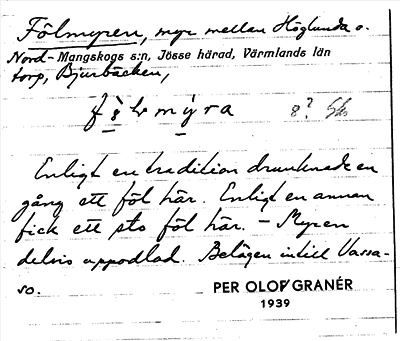 Fölmyren, myr mellan Höglunda o.
Nord- Mangskogs s:n, Jösse härad, Värmlands län
torp, Bjurbäcken,
myra 8?
Enligt en tradition drunknade en
gång ett föl här. Enligt en annan
fick ett sto föl här. – Myren
delvis uppodlad. Belägen intill Vassa-
so.
PER OLOF GRANÉR
1939